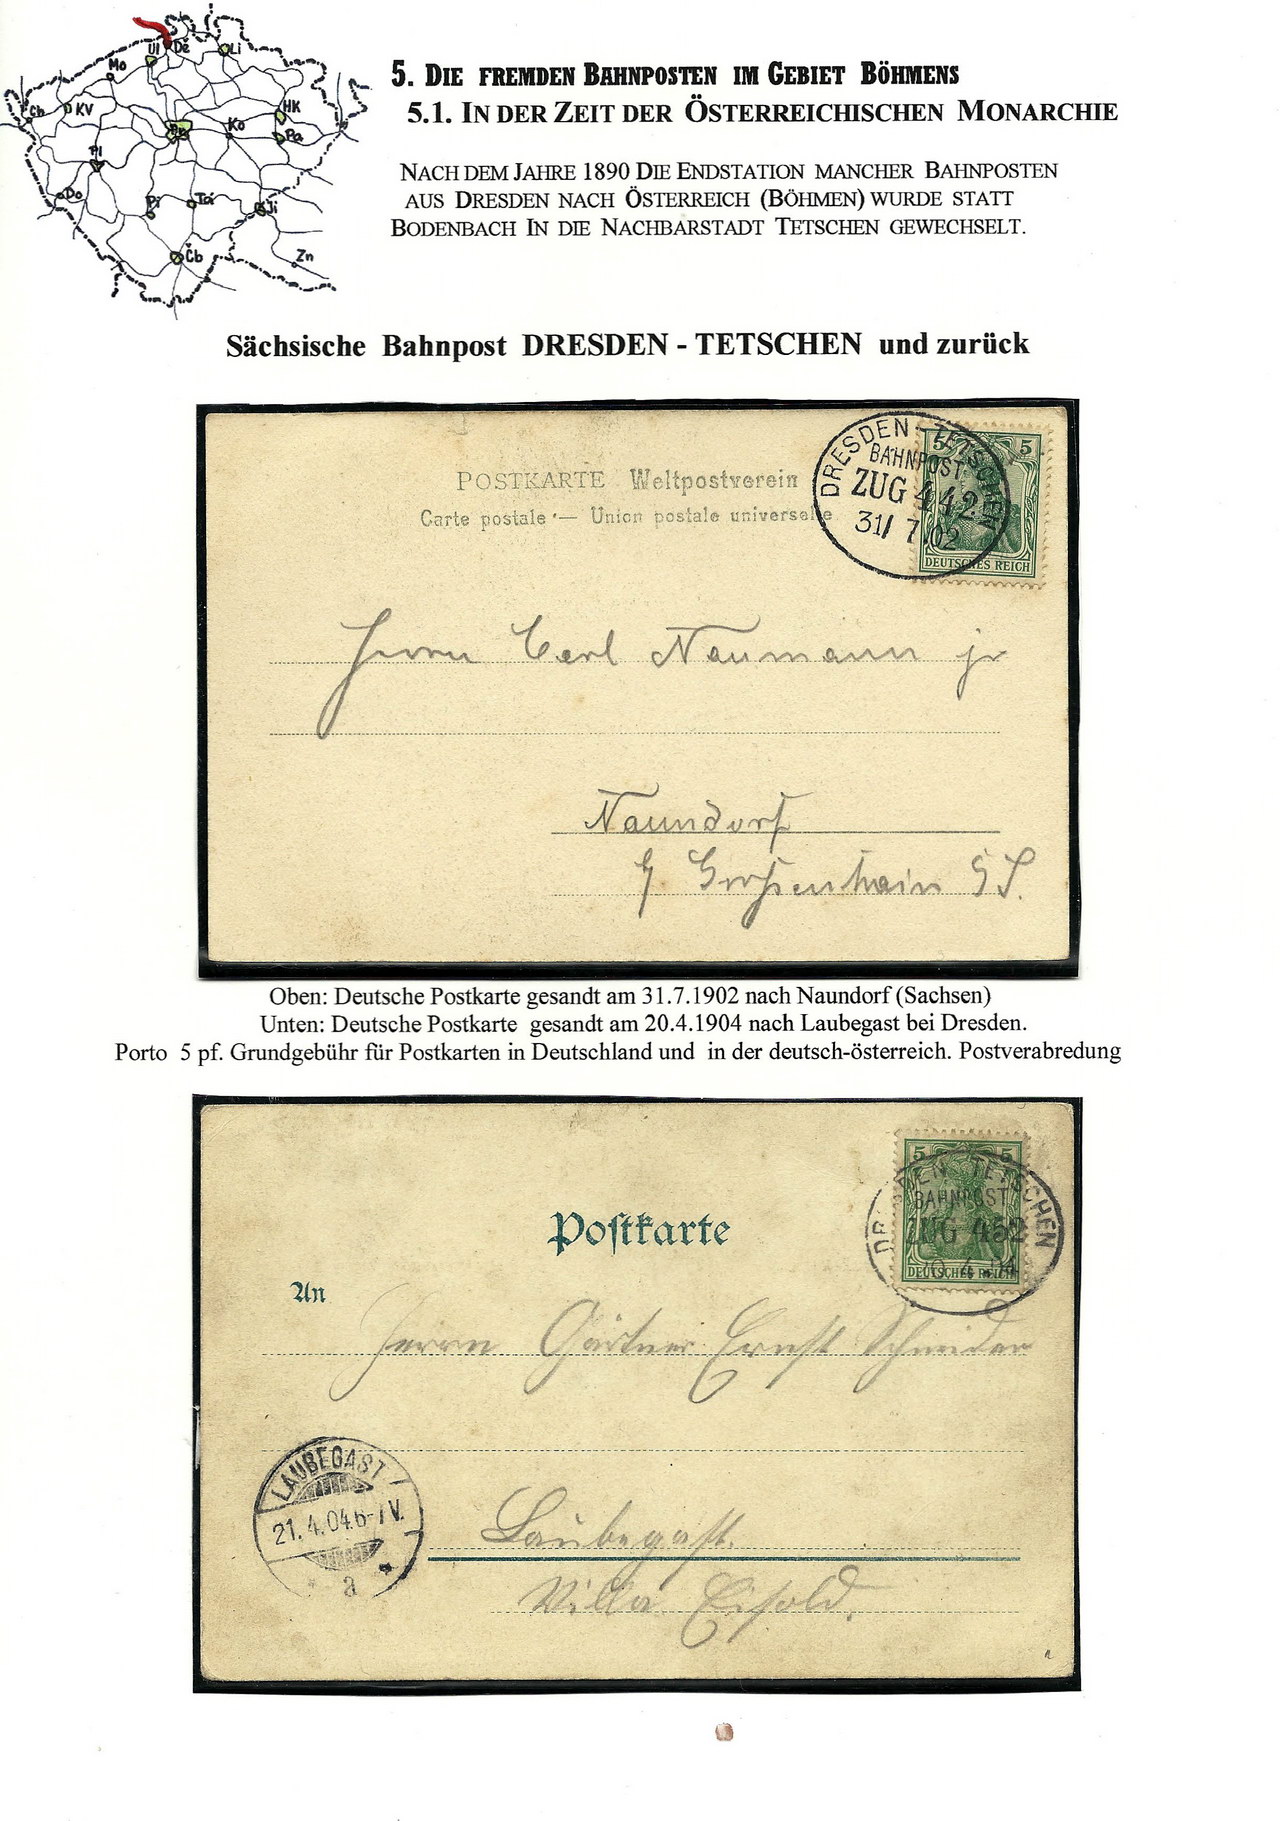 Mo
Ul
Dě
Li
Ch
KV
HK
Pr
Ko
Pa
Pl
Do
Pi
Tá
Ji
Čb
Zn
5. DIE FREMDEN BAHNPOSTEN IM GEBIET BÖHMENS
5.1. IN DER ZEIT DER ÖSTERREICHISCHEN MONARCHIE
NACH DEM JAHRE 1890 DIE ENDSTATION MANCHER BAHNPOSTEN
AUS DRESDEN NACH ÖSTERREICH (BÖHMEN) WURDE STATT
BODENBACH IN DIE NACHBARSTADT TETSCHEN GEWECHSELT.
Sächsische Bahnpost DRESDEN - TETSCHEN und zurück
POSTKARTE Weltpostverein
Carte postale — Union postale universelle
DRESDEN - TETSCHEN
BAHNPOST
ZUG 442
31/ 7.02
5 5
DEUTSCHES REICH
Herrn Carl Naumann jr
Naundorf
Großenhain S.
Oben: Deutsche Postkarte gesandt am 31.7.1902 nach Naundorf (Sachsen)
Unten: Deutsche Postkarte gesandt am 20.4.1904 nach Laubegast bei Dresden.
Porto 5 pf. Grundgebühr für Postkarten in Deutschland und in der deutsch-österreich. Postverabredung
Postkarte
An
5 5
DRESDEN - TETSCHEN
BAHNPOST
ZUG 452
20.4.04
DEUTSCHES REICH
Herrn Gärtner Ernst Schneider
LAUBEGAST
21.4.04.6-7V.
* a *
Laubegast.
Villa Eisold.